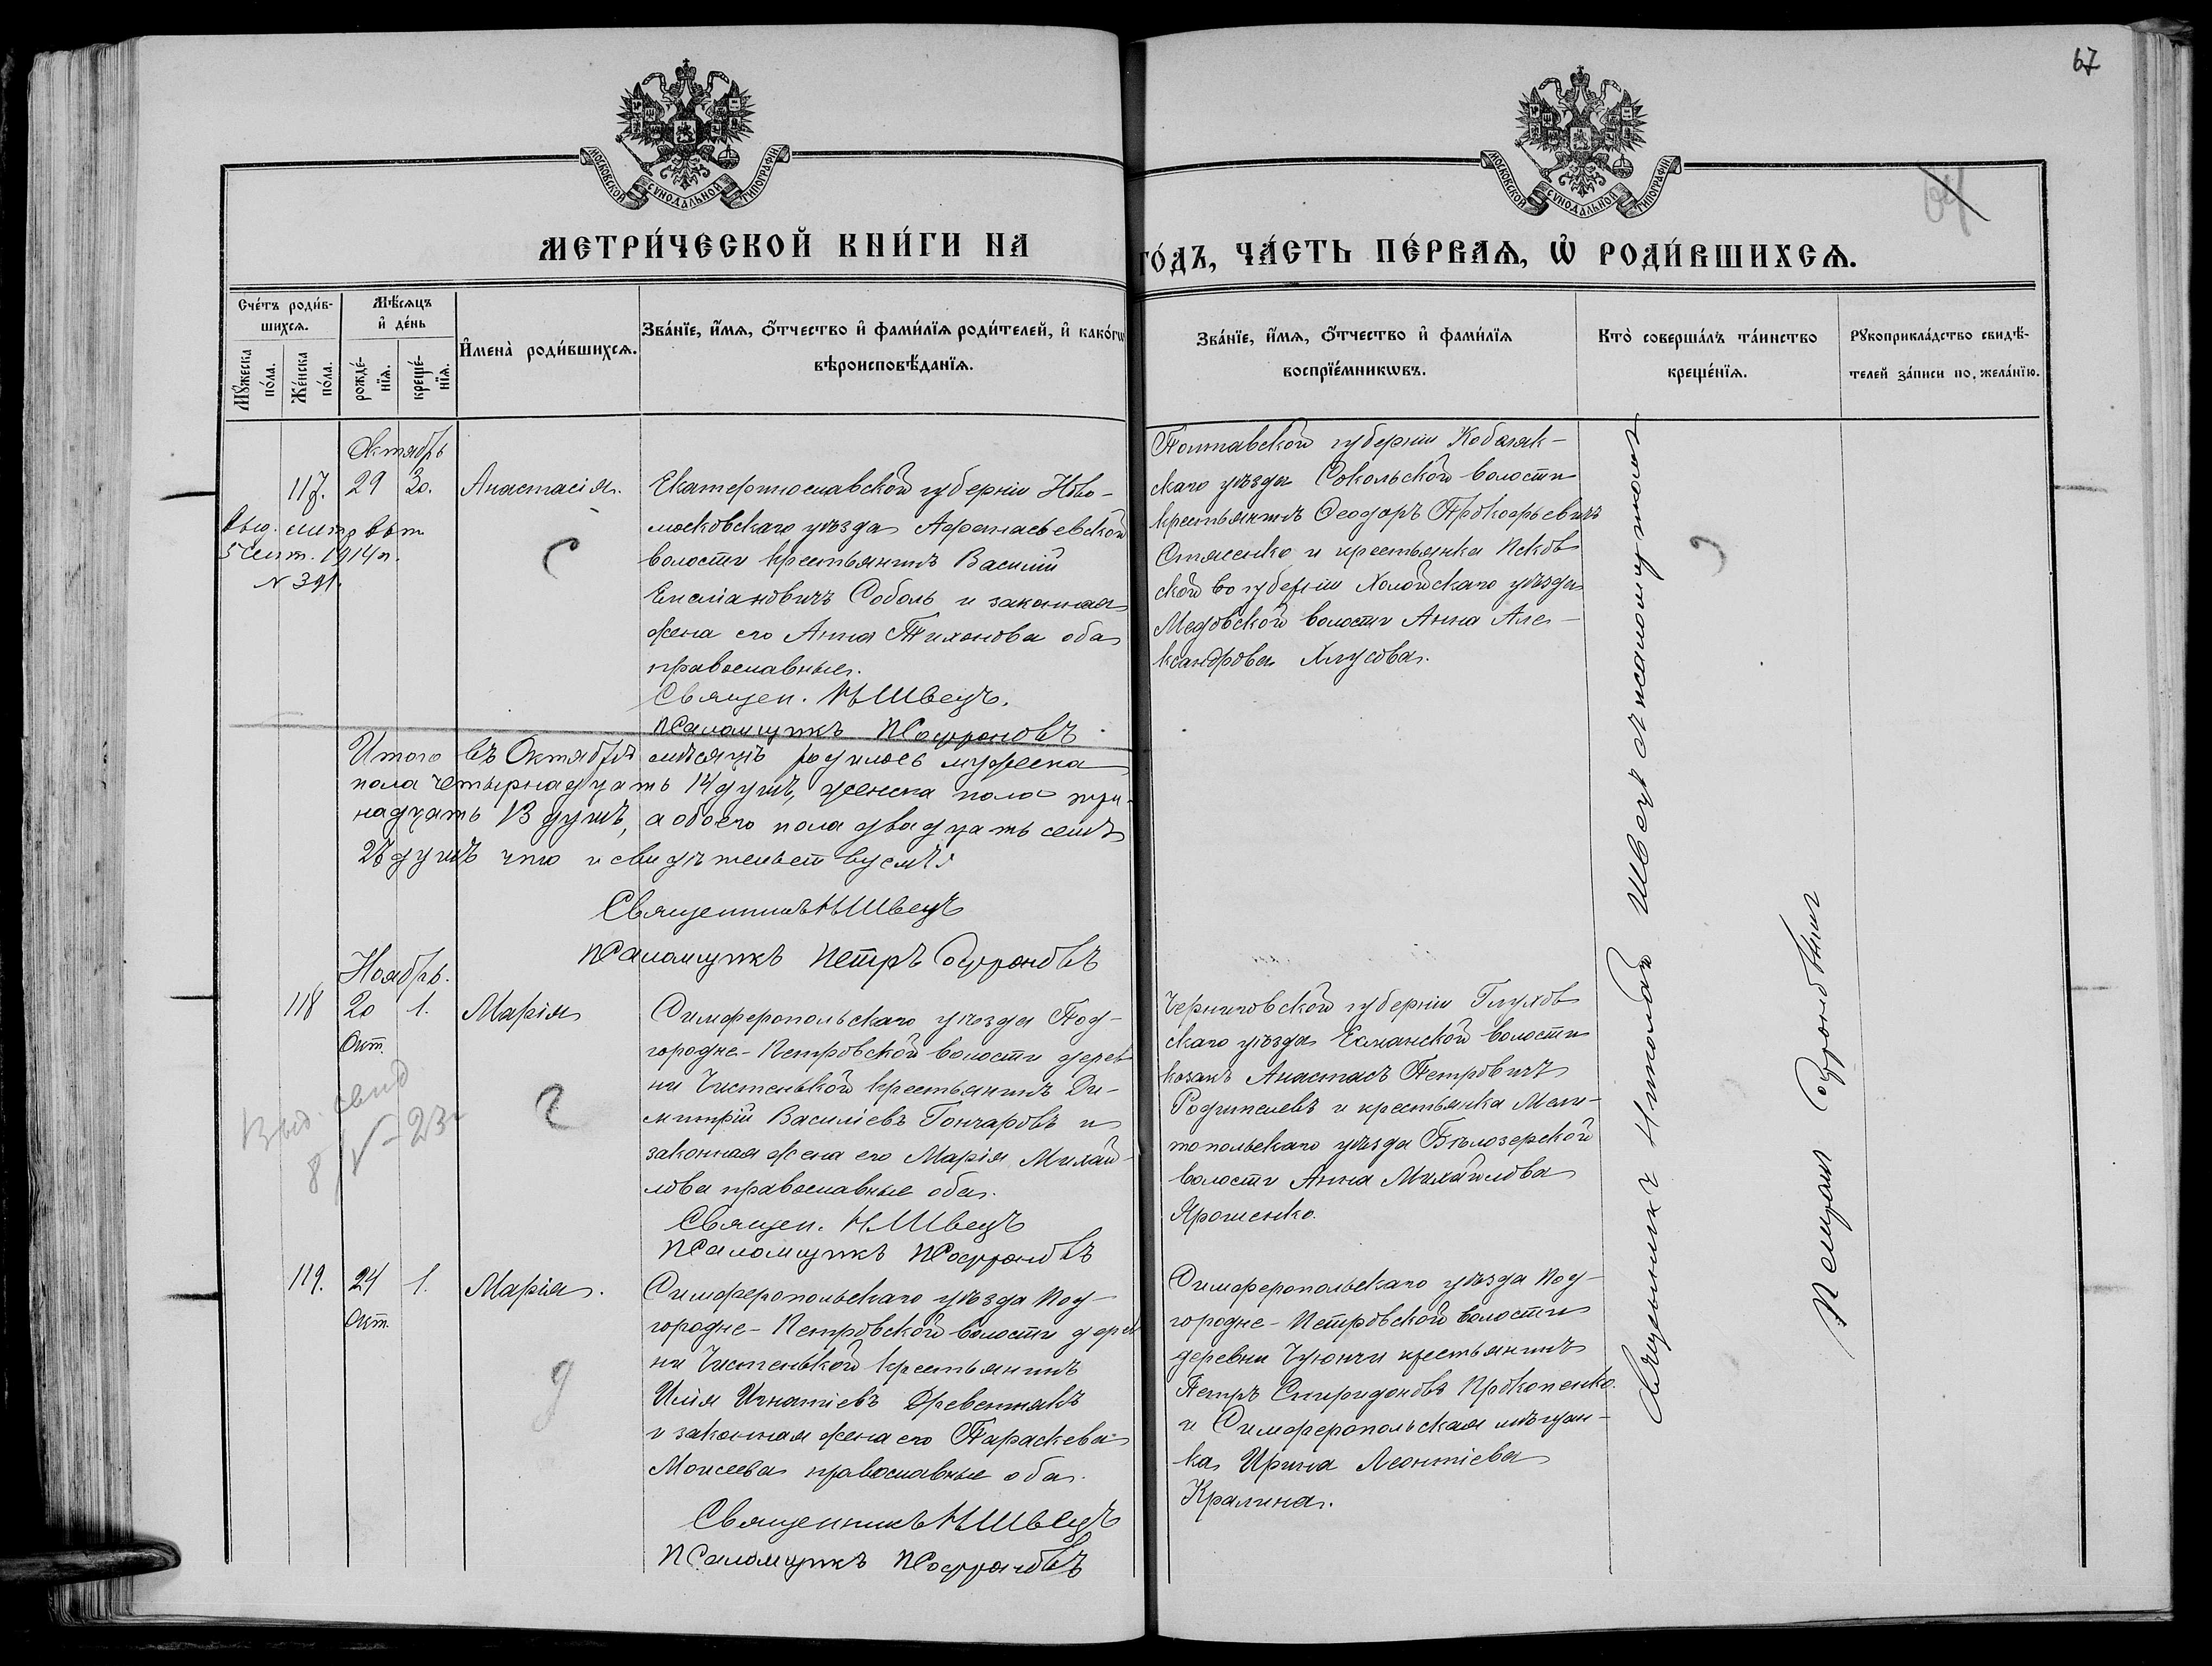 67
64
МОСКОВСКОЙ СѴНОДАЛЬНОЙ ТИПОГРАФІИ
МОСКОВСКОЙ СѴНОДАЛЬНОЙ ТИПОГРАФІИ
МЕТРИ́ЧЕСКОЙ КНИ́ГИ НА
ГО́ДЪ, ЧА́СТЬ ПЕ́РВАѦ, Ѡ҆ РОДИ́ВШИХСѦ.
Сче́тъ роди́в-
шихсѧ.
Мꙋ́жеска по́ла.
Же́нска по́ла.
Мѣ́сѧцъ
и҆ де́нь
рожде́-
нїѧ.
креще́-
нїѧ.
И҆мена̀ роди́вшихсѧ.
Зва́нїе, и҆́мѧ, ѻ҆́тчество и҆ фами́лїѧ роди́телей, и҆ како́гѡ
вѣроисповѣ́данїѧ.
Зва́нїе, и҆́мѧ, ѻ҆́тчество и҆ фами́лїѧ
воспрїе́мникѡвъ.
Кто̀ соверша́лъ та́инство
креще́нїѧ.
Рꙋкоприкла́дство свидѣ́-
телей за́писи по, жела́нїю.
Октябрь
117. 29 30. Анастасія.
Выд. метр. вып.
5 Сент. 1914 г.
N 391
Екатеринославской губерніи Ново-
московскаго уѣзда Афанасьевской
волости крестьянинъ Василій
Емеліановичъ Соболь и законная
жена его Анна Тихонова оба
православные.
Священ. Н Швецъ.
Псаломщикъ П Софроновъ
Полтавской губерніи Кобеляк-
скаго уѣзда Сокольской волости
крестьянинъ Ѳеодоръ Прокофьевичъ
и крестьянка Псков
ской губерніи Холмскаго уѣзда
Медовской волости Анна Але-
ксандрова Хлусова.
Итого въ Октябрѣ мѣсяцѣ родилось мужеска
пола четырнадцать 14 душъ, женска пола три-
надцать 13 душъ, а обоего пола двадцать семь
27 душъ что и свидѣтельствуемъ:
Священникъ Н Швецъ
Псаломщикъ Петръ Софроновъ
Ноябрь.
118 20 1. Марія
Окт.
Выд. свид
8/V – 23 г
Симферопольскаго уѣзда Под-
городне-Петровской волости дерев
ни Чистенькой крестьянинъ Ди-
митрій Василіевъ Гончаровъ и
законная жена его Марія Михай-
лова православные оба.
Священ. Н Швецъ
Псаломщикъ П Софроновъ
Черниговской губерніи Глухов
скаго уѣзда Есманской волости
козакъ Анастасъ Петровичъ
Родителевъ и крестьянка Мели-
топольскаго уѣзда Бѣлозерской
волости Анна Михайлова
Ярошенко.
119. 24 1. Марія.
Окт.
Симферопольскаго уѣзда Под-
городне-Петровской волости дерев
ни Чистенькой крестьянинъ
Илія Игнатіевъ Древетнякъ
и законная жена его Параскева
Моисеева православные оба.
Священникъ Н Швецъ
Псаломщикъ П Софроновъ
Симферопольскаго уѣзда Под-
городне-Петровской волости
деревни Чуюнчи крестьянинъ
Петръ Спиридоновъ Прокопенко
и Симферопольская мѣщан-
ка Ирина Леонтіева
Кралина.
Священникъ Николай Швецъ и псаломщикъ
Петръ Софроновъ